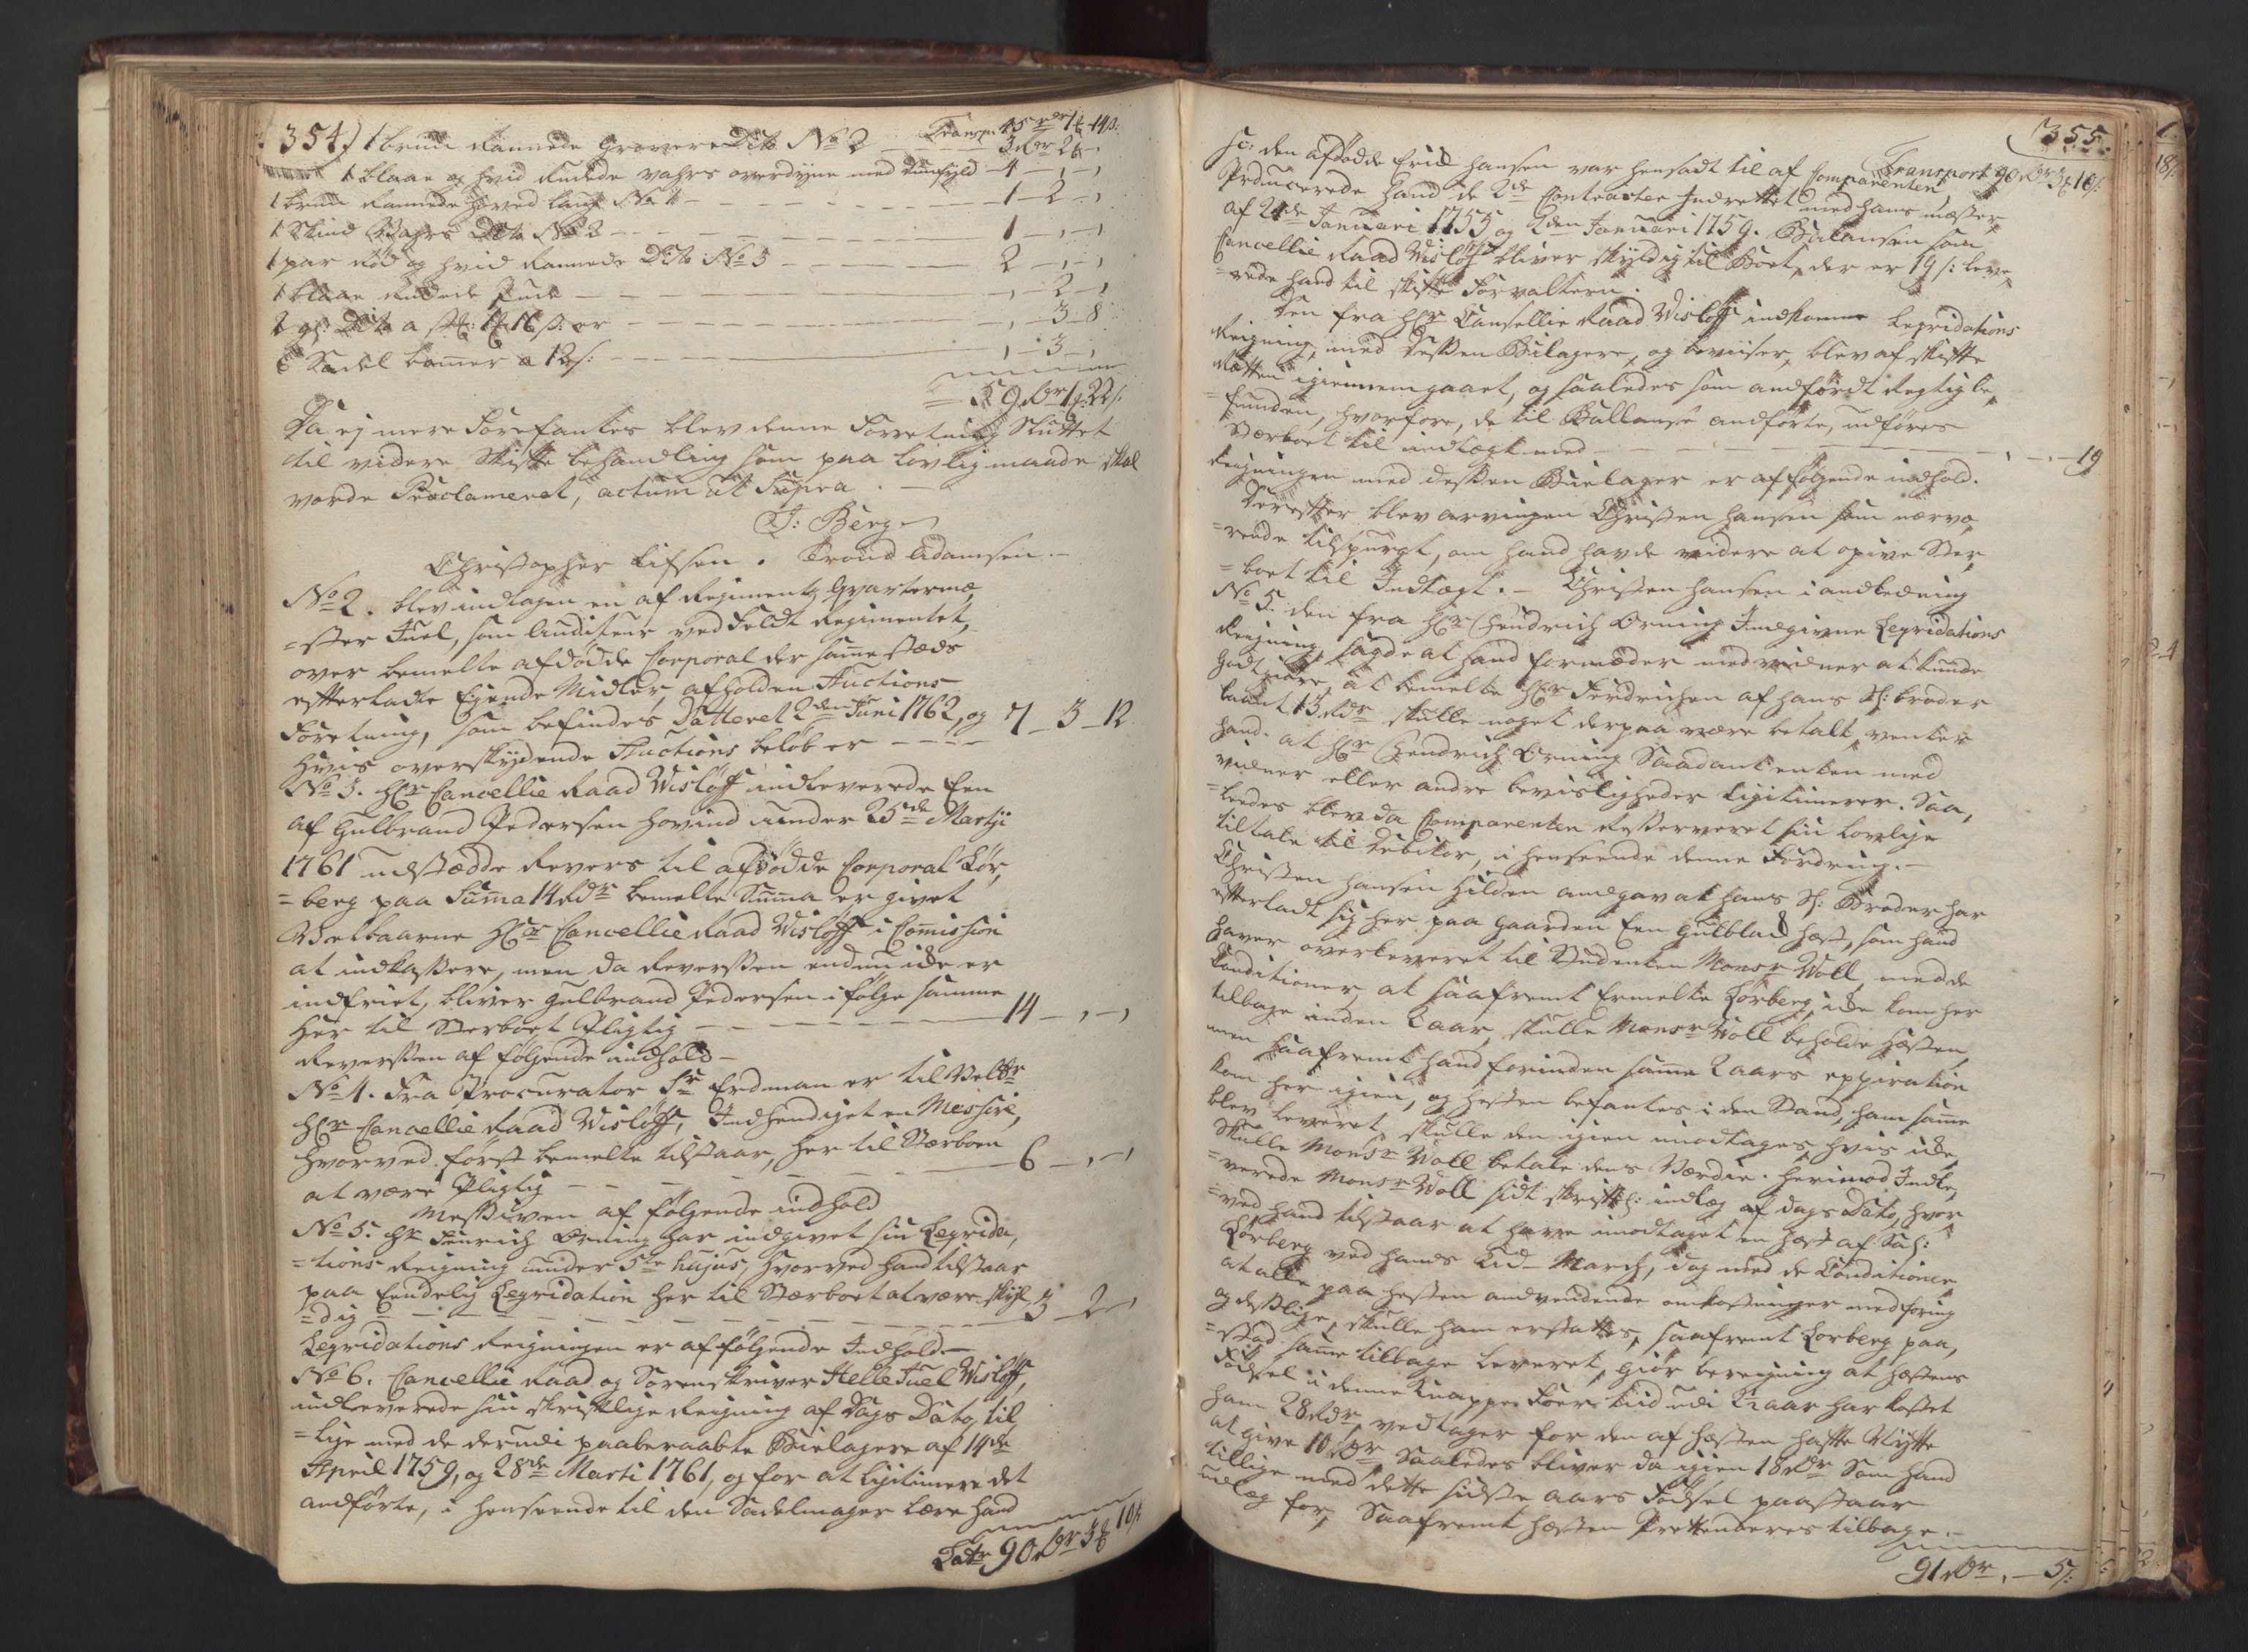 354.) Transp: 45 rdr 1 ƒ 14 s:
1 bruun Rannede Grovere Dito No 2 - 3 rdr 2 -
1 blaae og hvid Rudede vahrs overdyne med duunfyld - 4 - , - ,
1 bruun Rannede hoved lang No 1 - 1 - 2 - ,
1 Skind Vahrs Dito No 2 - 1 - , - ,
1 par Rød og hvid Rannede Dito No 3 - 2 - , - ,
1 blaae Rudede Pude - , - 2 - ,
2 gl: Dito a st: 1 ƒ 16 s: er - , - 3 - 8
6 Sadel bommer a 12 s: - , - 3 - ,
59 rdr 1 ƒ 22 s:
Da ej mere Forefantes blev denne Forretning Sluttet
til videre Skifte behandling som paa lovlig maade skal
vorde Proclameret, actum ut Supra. -
J: Berg
Christopher Lifsen. Trond Adamsen. -
No 2. blev indtagen en af Regiments Qvartermæ,
=ster Juel, som Auditeur ved Feldt Regimentet,
over bemelte afdødde Corporal der samme steds
efterladte Eyende Midler, afholden Auctions
Forretning, som befindes Datteret 2den Juni 1762, og
hvis overskydende Auctions beløb er - 7 - 3 - 12
No 3. Hr Cancellie Raad Wisløff indleverede Een
af Gulbrand Pedersen Hovind under 25de Martji
1761 udstædde Revers til afdødde Corporal Lør,
=berg paa Summa 14 rdr bemelte Summa er givet
Velbaarne Hr Cancellie Raad Wisløff i Commission
at indkassere, men da Reverssen endnu icke er
indfriet, bliver Gulbrand Pedersen i følge samme
Her til Sterboet Pligtig - 14 - , - ,
Reverssen af følgende indhold -
No 4. Fra Procurator Sr Erdman er til Velbr
Hr Cancellie Raad Wisløff, Indhendiget en Messive,
hvorved først bemelte tilstaar, her til Stærboen
at være Pligtig - 6 - , - ,
Messiven af følgende indhold
No 5. Hr Henrich Orning har indgivet sin Leqvida,
=tions Reigning under 5te hujus, hvorved hand tilstaar
paa Eendelig Leqvidation her til Stærboet at være skyl,
=dig - 3 - 2 - ,
Leqvidations Reigningen er af følgende Indhold -
No 6. Cancellie Raad og Sorenskriver Helle Juel Wisløff,
indleverede sin skriftlige Reigning af Dags Dato, til,
=lige med de derudi paaberaabte Bielagere af 14de
April 1759, og 28de Marti 1761, og for at ligitimere det
andførte, i henseende til den Sadelmager lære hand
Latr 90 rdr 3 ƒ 10 s:
355.
Transport 90 rdr 3 ƒ 10 s:
sc: den afdødde Erich Hansen var hensadt til af Comparenten
Producerede hand de 2de Contracter Indrettet med hans mæster
af 24de Januari 1755 og 2den Januari 1759. Balansen som
Cancellie Raad Wisløff bliver skyldig til Boet, der er 19 s: leve,
=rede hand til skifte Forvaltern.
Den fra Hr Cansellie Raad Wisløff indkomne Leqvidations
Reigning, med dessen Bilagere, og beviiser, blev af skifte
Retten igiennemgaaet, og saaledes som andført Rigtig be,
=funden, hvorfore, de til Ballanse andførte, udføres
Stærboet til indtægt med - , - , - 19
Reigningen med dessen Bielager er af følgende indhold.
Derefter blev arvingen Christen Hansen som nærvæ,
=rende tilspurgt, om hand havde videre at opgive Ster,
=boet til Indtægt. - Christen Hansen i andledning
No 5. den fra Hr Hendrich Orning Indgivne Leqvidations
Reigning, sagde at hand formoder med vidner at kunde
godtgiøre, at bemelte Hr Fendrichen af hans Sl: broder
laant 15 rdr skulle noget derpaa være betalt, venter
hand. at Hr Hendrich Orning Saadant enten med
vidner eller andre bevisligheder ligitimerer. Saa,
=leedes blev da Comparenten Resserveret sin lovlige
tiltale til Debitor, i henseende denne Fordring. -
Christen Hansen Hilden andgav at hans Sl: Broder har
efterladt sig her paa gaarden Een gulblak hest, som hand
haver overleveret til Studenten Monsr Woll, med de
Conditioner, at saafremt Ermelte Lørberg, icke kom her
tilbage inden 2 aar, skulle Monsr Woll beholde Hæsten,
men saafremt hand forinden samme 2 aars expiration
kom her igien, og hesten befantes i den Stand, ham samme
blev leveret, skulle den igien imodtages, hvis icke,
skulle Monsr Woll betale dens Værdie. Herimod Indle,
=verede Monsr Woll sidt skriftl: indlæg af dags Dato, hvor,
=ved hand tilstaar at have imodtaget en hest af Sal:
Lørberg ved hands Tid - March, dog med de Conditioner
at alle paa hesten andvendende omkostninger med foring
og desslige, skulle ham erstattes, saafremt Lorberg paa,
=stod samme tilbage leveret, giør bereigning at hæstens
Fødsel i denne knappe Foer tiid udi 2 aar har kostet
ham 28 rdr, vedtager for den af hæsten hafte Nytte
at give 10 rdr, Saaledes bliver da igien 18 rdr som hand
tillige med dette sidste aars Fødsel paastaar
udlæg for, Saafremt hæsten Prettenderes tilbage. -
91 rdr , - 5 s: